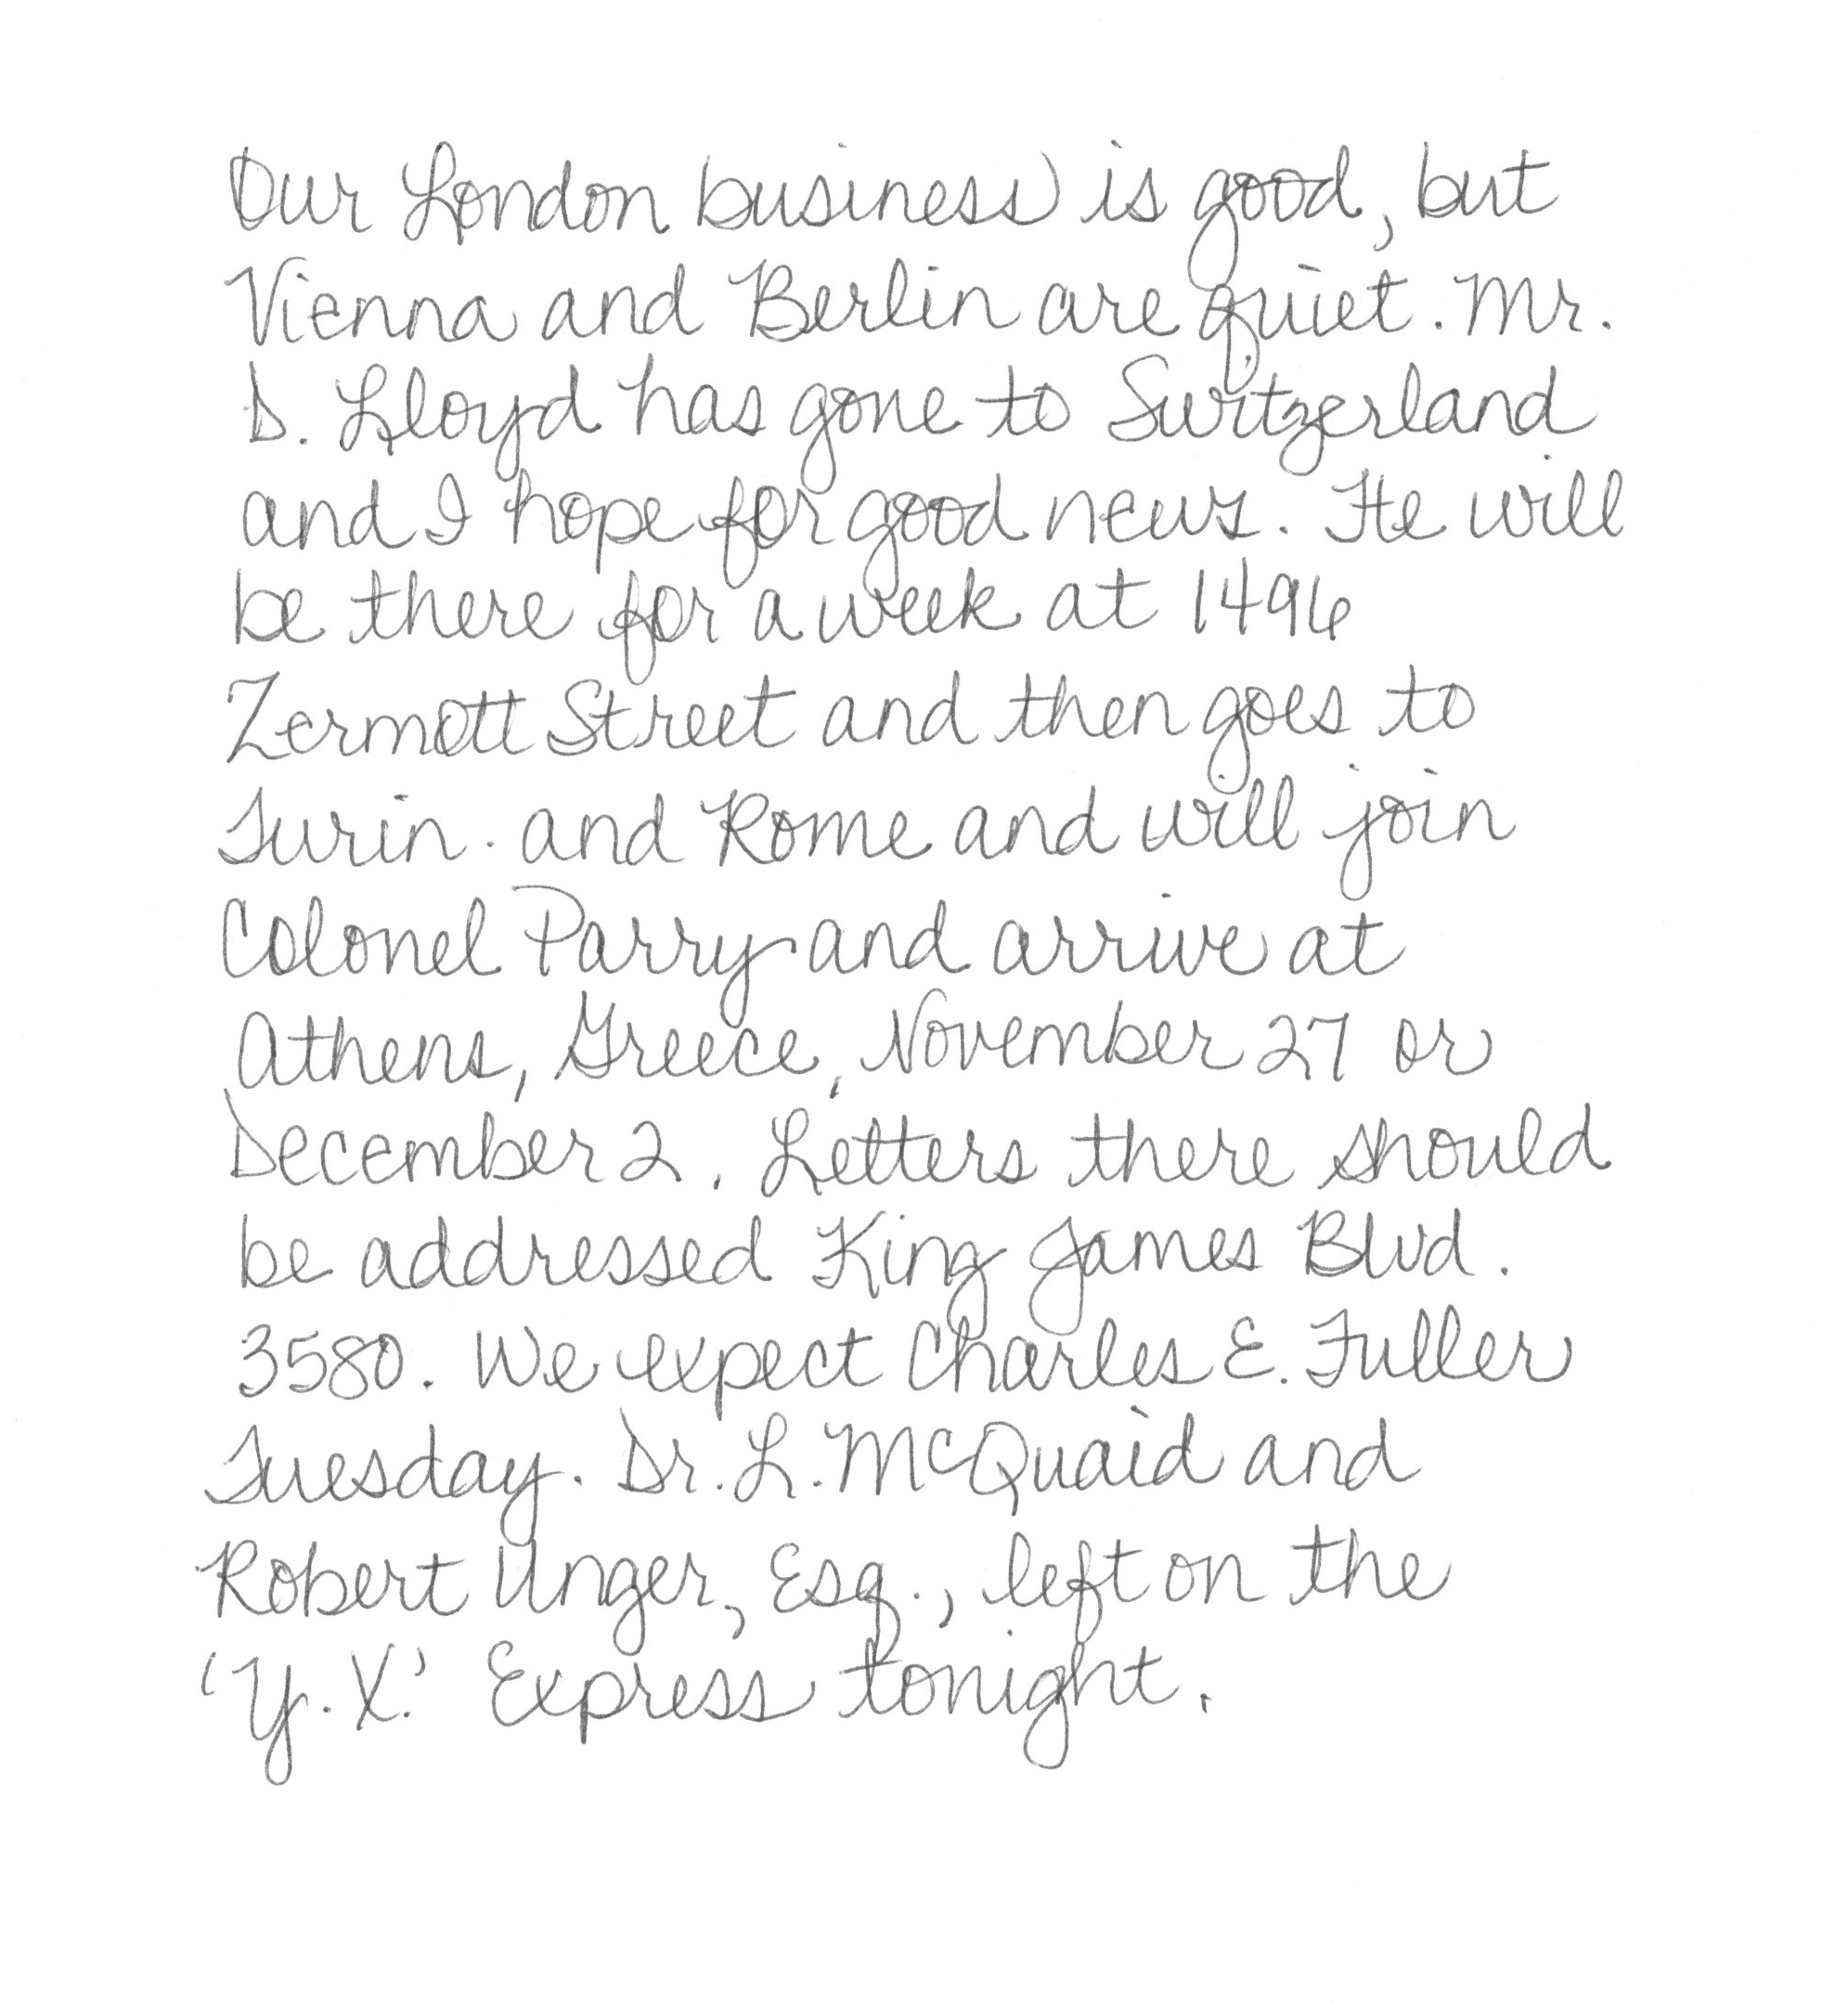 Our London business is good, but
Vienna and Berlin are quiet. Mr.
D. Lloyd has gone to Switzerland
and I hope for good news. He will
be there for a week at 1496
Zermott Street and then goes to
Turin. and Rome and will join
Colonel Parry and arrive at
Athens, Greece, November 27 or
December 2. Letters there should
be addressed King James Blvd.
3580. We expect Charles E. Fuller
Tuesday. Dr. L. McQuaid and
Robert Unger, Esq., left on the
'Y.X.' Express tonight.